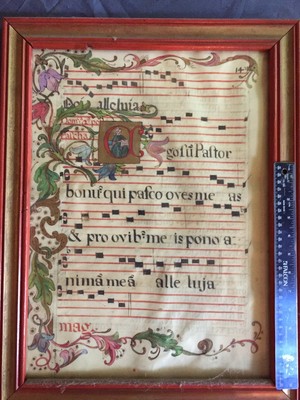 Dei alleluia
go sū Pastor
bonus qui pasco oves me as
& pro ovibʒ me is pono a
nimā meā alle luja
mag